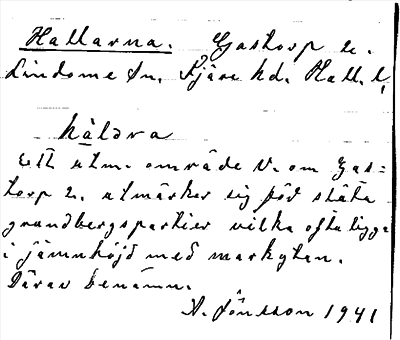 Hallarna. Gastorp 2.
Lindome sn. Fjäre hd. Hall. l.
hàldra
Ett utm. område V. om Gas-
torp 2. utmärker sig för släta
grundbergspartier vilka ofta ligga
i jämnhöjd med markytan.
Därav benämn.
A. Jönsson 1941